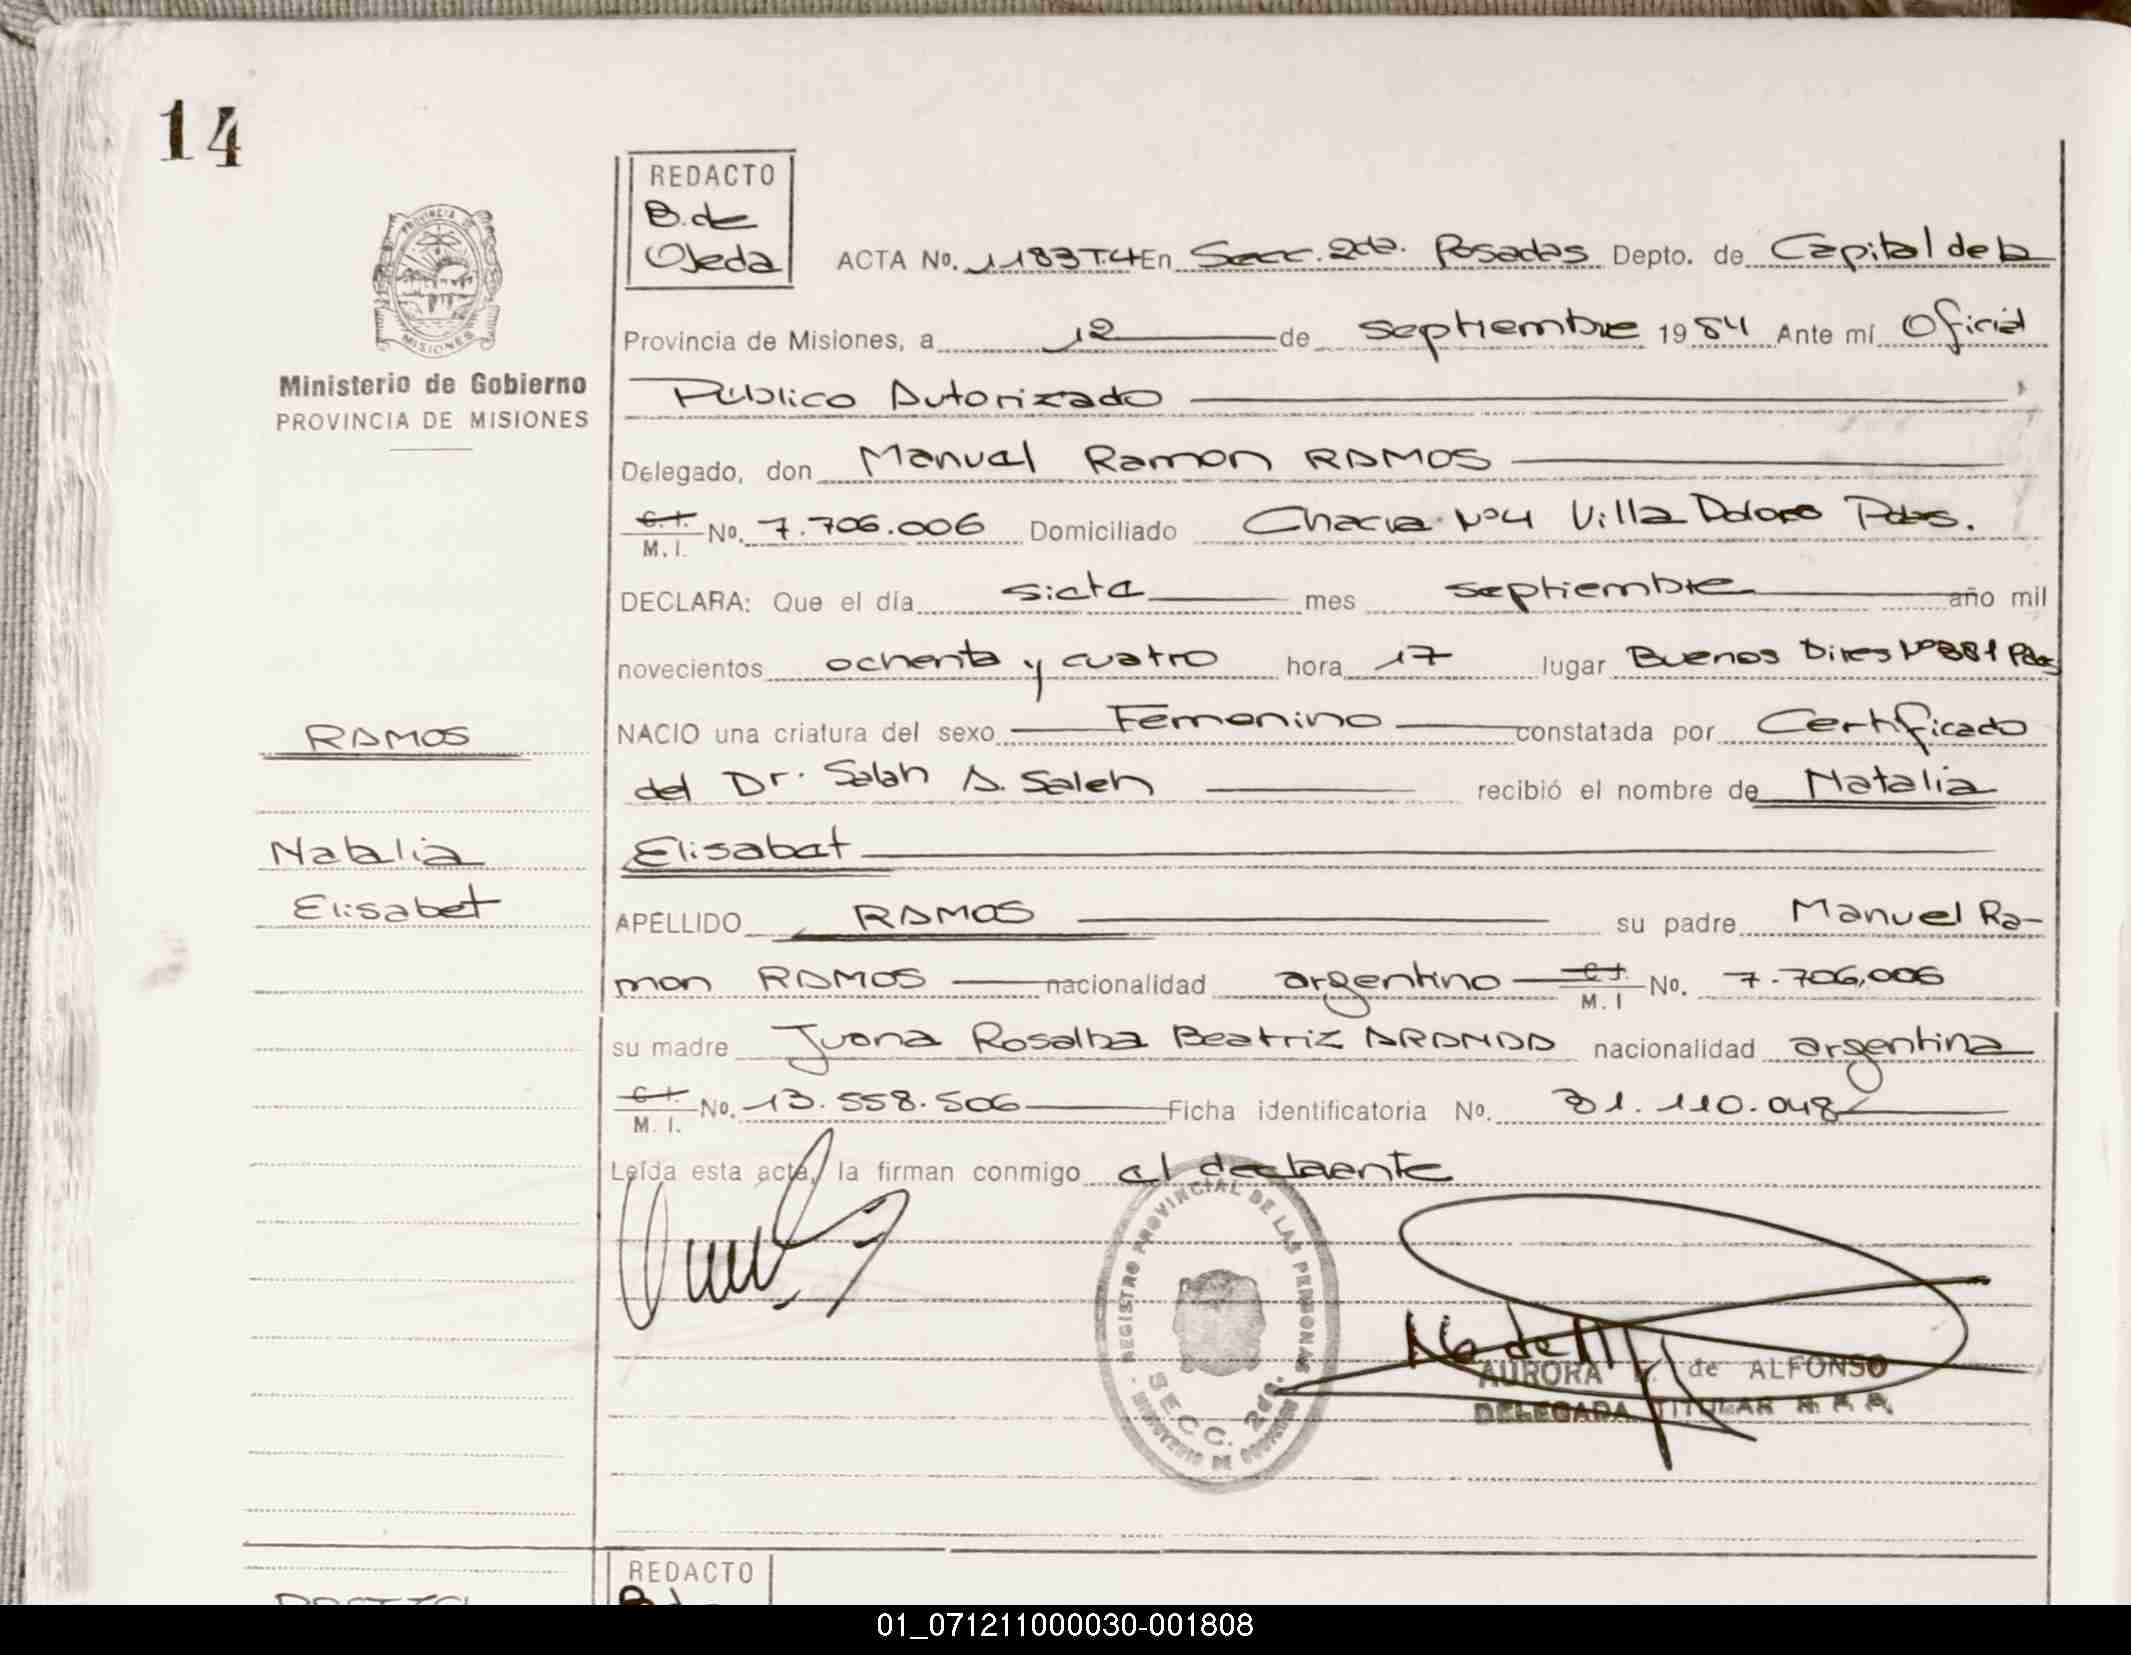 14
REDACTO
B. de
Ojeda
ACTA No. 1183 T.4 En Secc. 2da. Posadas Depto. de Capital de la
Provincia de Misiones, a 12 de septiembre 1984 Ante mí Oficial
Ministerio de Gobierno
PROVINCIA DE MISIONES
Público Autorizado
Delegado, don Manuel Ramon RAMOS
C. I.
M. I. No. 7.706.006 Domiciliado Chacra Nº4 Villa Dolores Pdas.
DECLARA: Que el día siete mes septiembre año mil
novecientos ochenta y cuatro hora 17 lugar Buenos Aires Nº 881 Pdas
RAMOS
NACIO una criatura del sexo Femenino constatada por Certificado
del Dr. Salah A. Saleh recibió el nombre de Natalia
Natalia
Elisabet
Elisabet
APELLIDO RAMOS su padre Manuel Ra-
mon RAMOS nacionalidad argentino C. I. M. I No. 7.706.006
su madre Juana Rosalba Beatriz ARANDA nacionalidad argentina
C. I.
M. I. No. 13.558.506 Ficha identificatoria No. 31.110.048
Leída esta acta, la firman conmigo el declarente
REGISTRO PROVINCIAL DE LAS PERSONAS
SECC. 2da.
MINISTERIO DE GOBIERNO
AURORA de ALFONSO
DELEGADA TITULAR
REDACTO
01_071211000030-001808